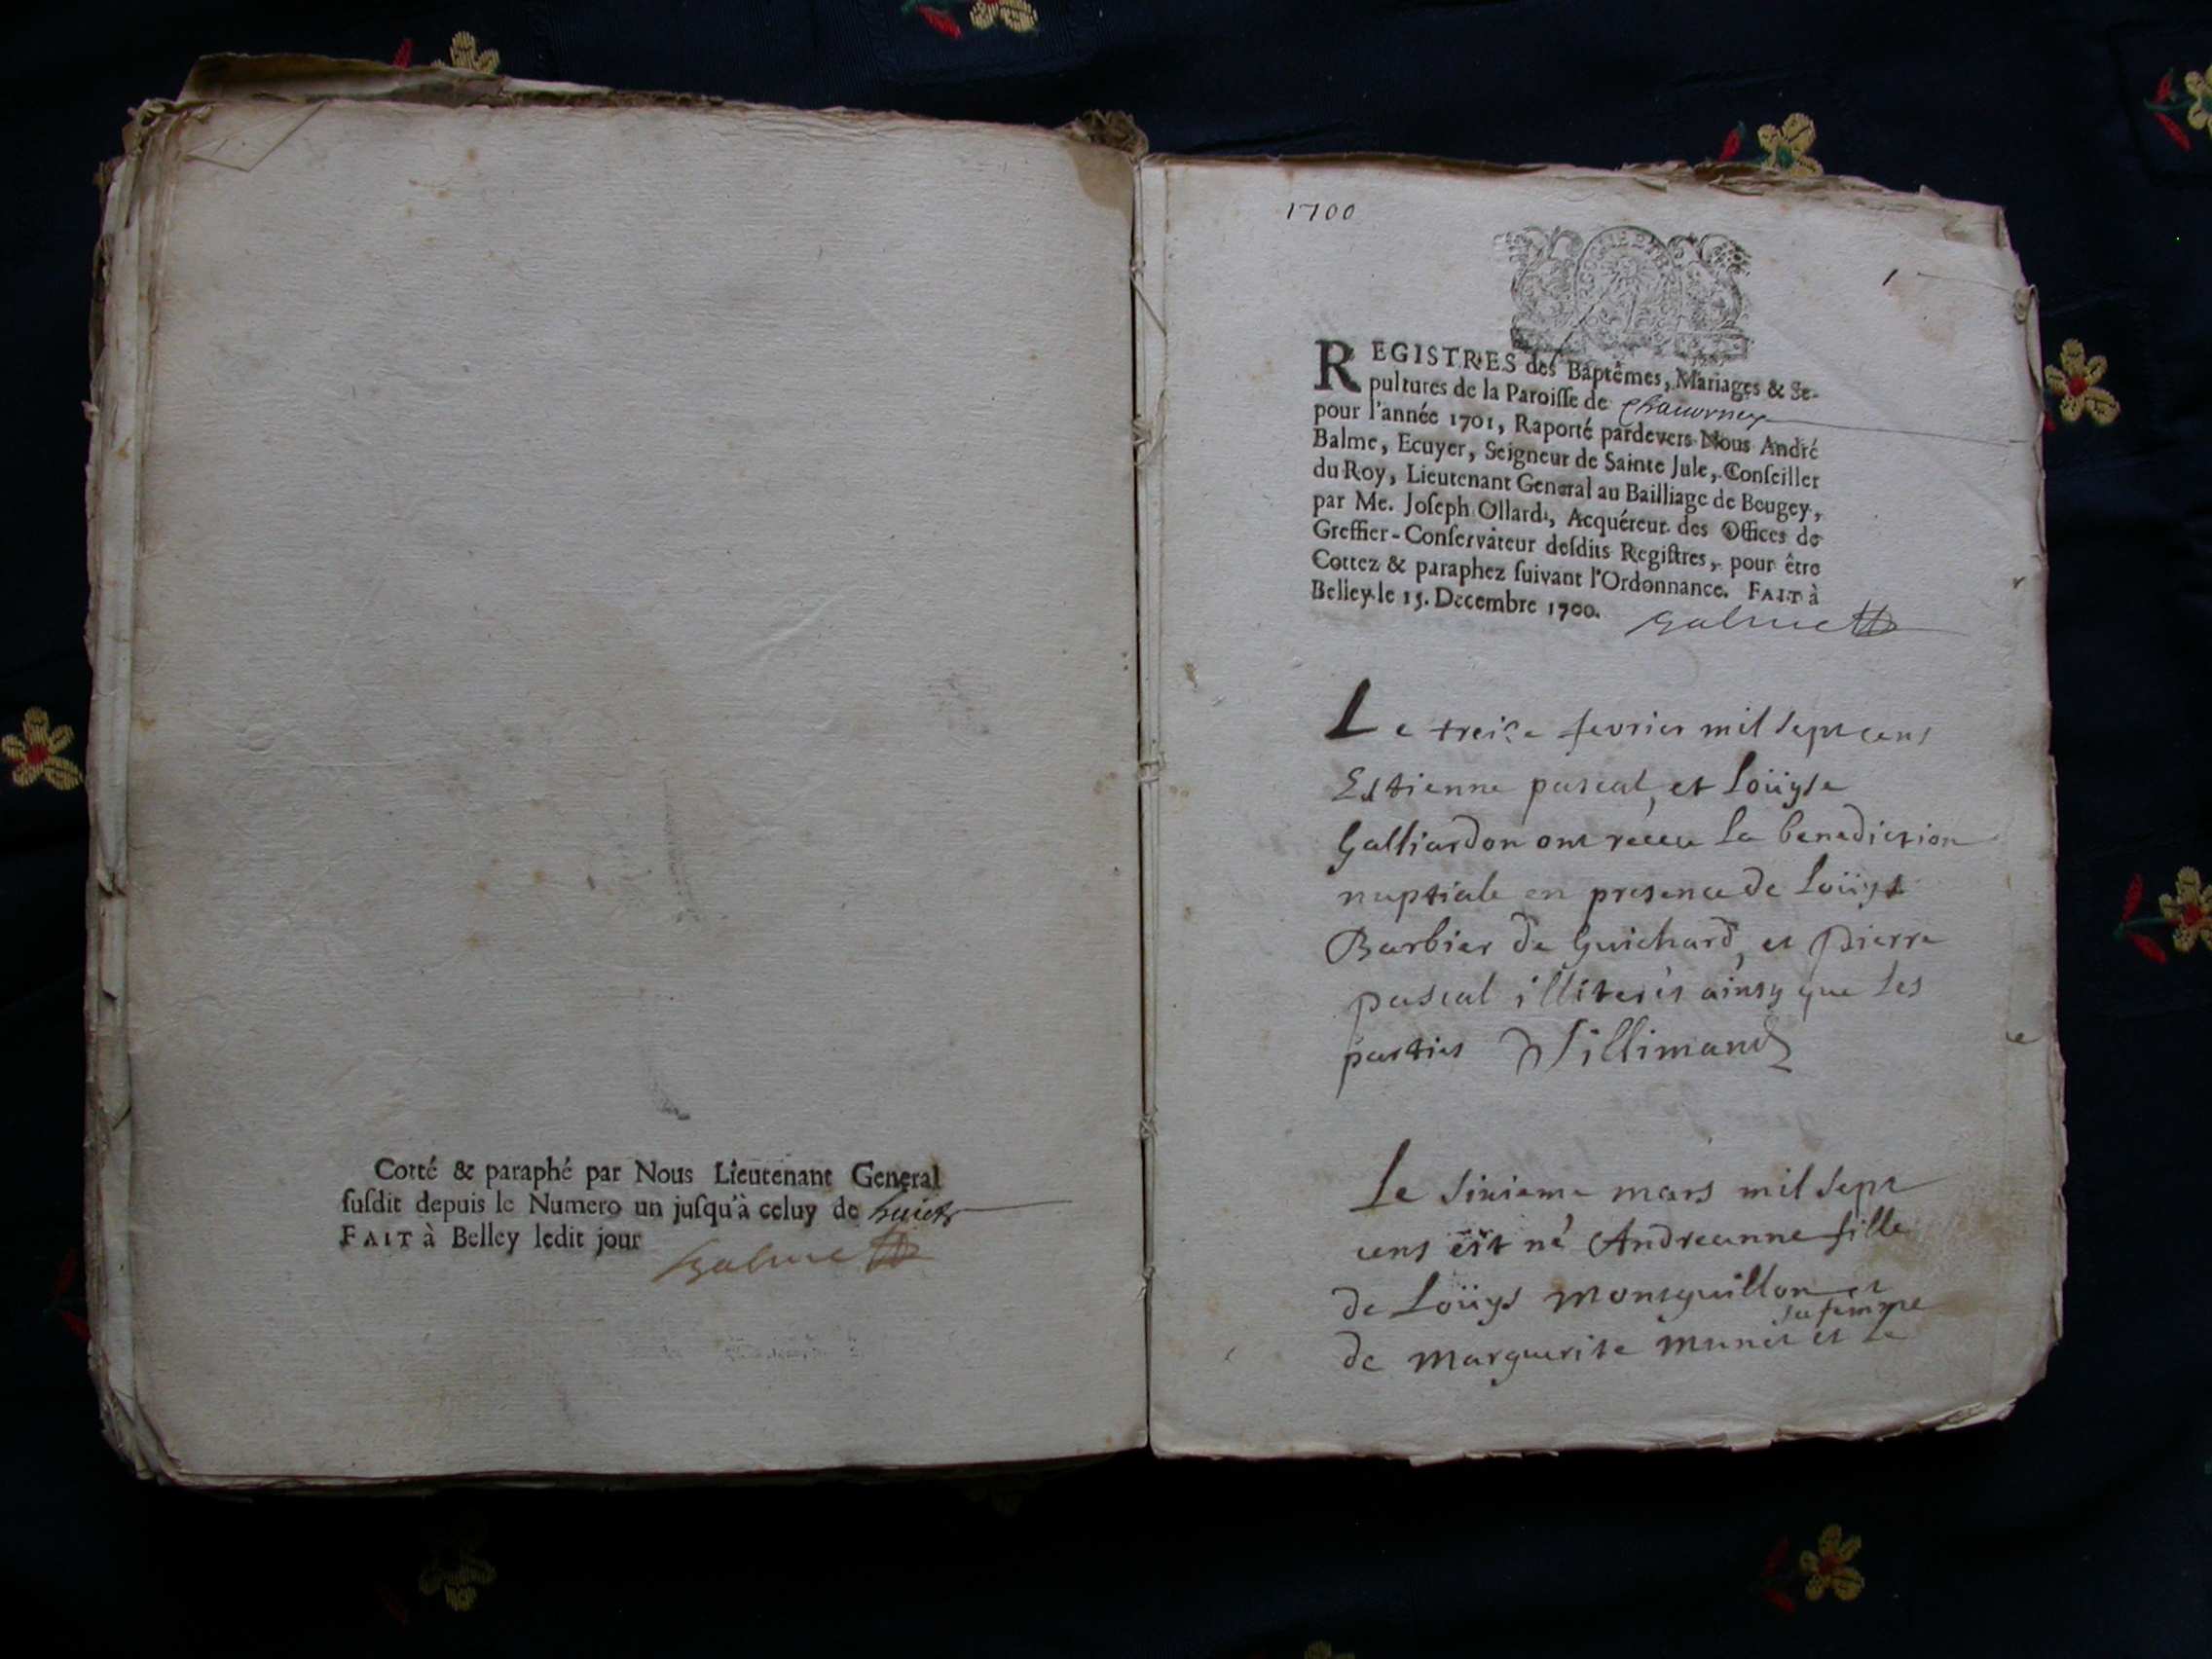 Cotté & paraphé par Nous Lieutenant General
suſdit depuis le Numero un juſqu'à celuy de huict
FAIT à Belley ledit jour
Balme
1700
1
REGISTRES des Baptêmes, Mariages & Se-
pultures de la Paroiſſe de
pour l'année 1701, Raporté pardevers Nous André
Balme, Ecuyer, Seigneur de Sainte Jule, Conſeiller
du Roy, Lieutenant General au Bailliage de Beugey,
par Me. Joſeph Ollard, Acquéreur des Offices de
Greffier-Conſervateur deſdits Regiſtres, pour être
Cottez & paraphez ſuivant l'Ordonnance. FAIT à
Belley le 15. Decembre 1700.
Balme
Le treise fevrier mil sept cens
Estienne pascal, et Loüyse
Galliardon ont receu la benediction
nuptiale en presence de Loüys
Barbier de Guichard, et Pierre
pascal illiterés ainsy que les
parties Sillimand
Le sixieme mars mil sept
cens est né Andreanne fille
de Loüys Monsguillon et
sa femme
de marguerite munet et le